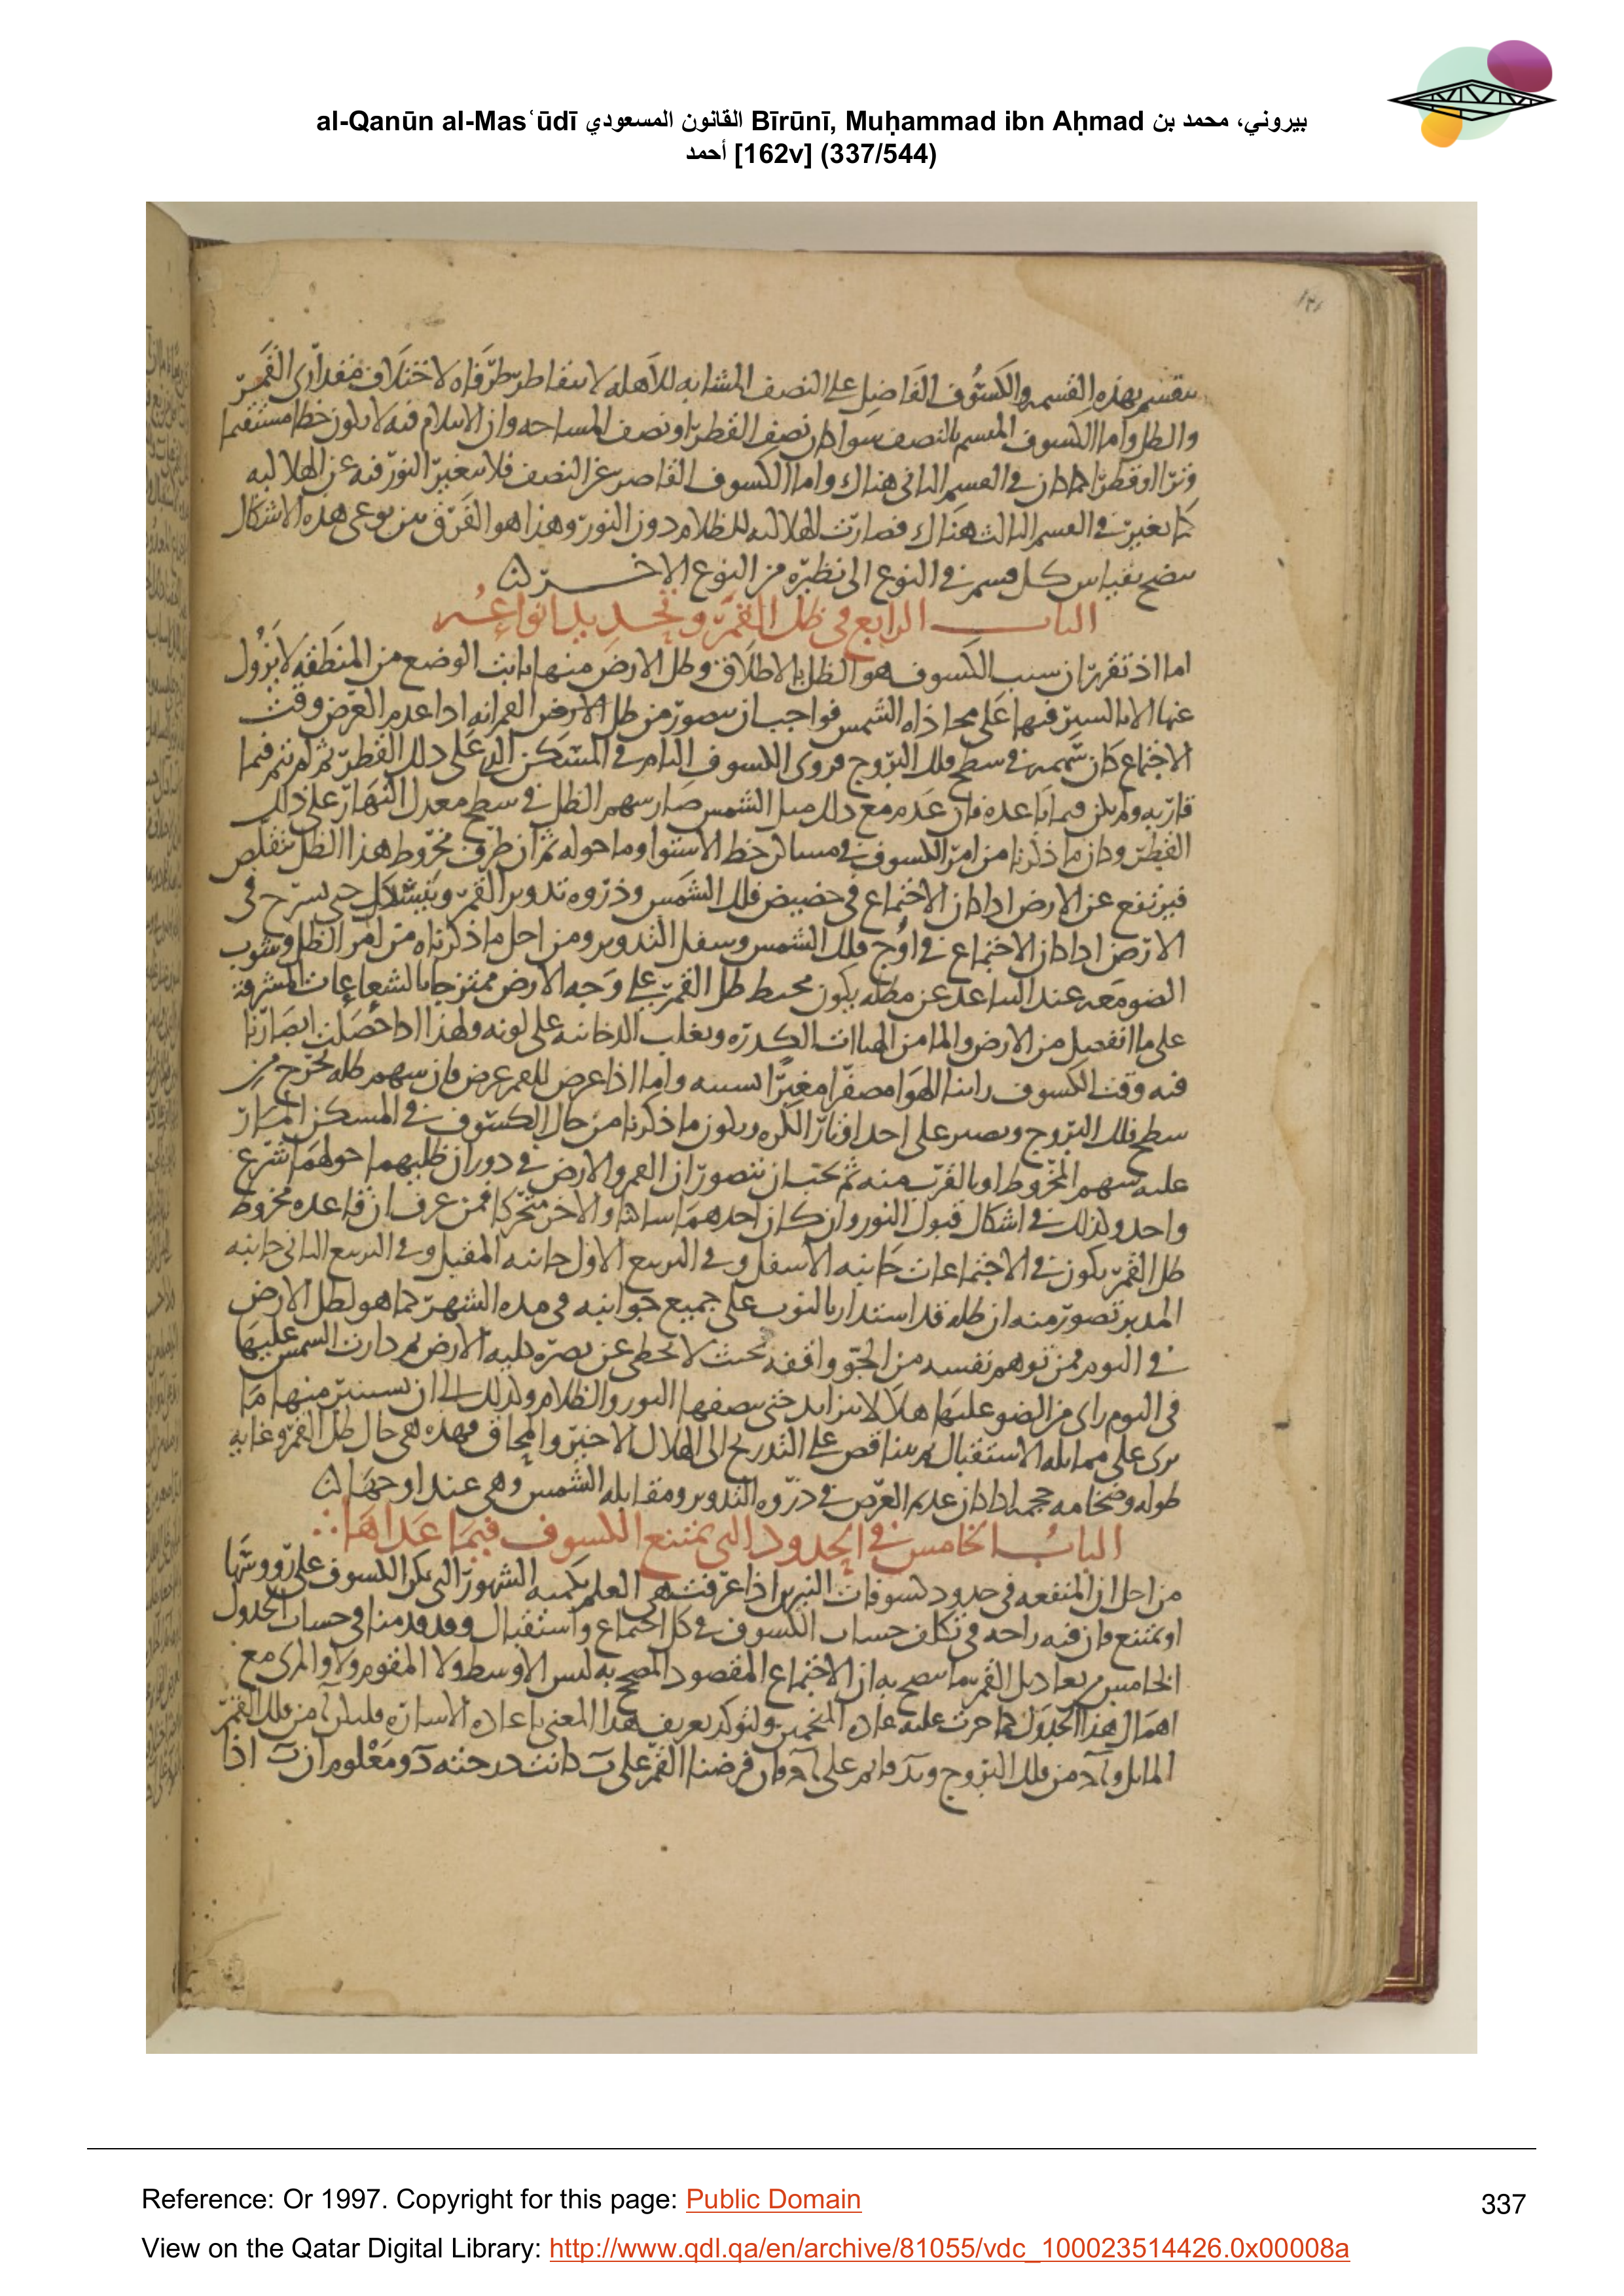 al-Qanūn al-Masʿūdī القانون المسعودي Bīrūnī, Muḥammad ibn Aḥmad بيروني، محمد بن
أحمد [162v] (337/544)
ينقسم بهذه القسمة والكسوف الفاضل على النصف المشابه للاهلة لا يتقاطر طرفاه لاختلاف مقداري القمر
والظل واما الكسوف المنصف سوا كان نصف القطر او نصف المساحة وان الانثلام فيه لا يكون خطا مستقيما
وترا او قطرا كما كان في القسم الثاني هناك واما الكسوف القاصر عن النصف فلا يتغير النور فيه عن الهلالية
كما تغير في القسم الثالث هناك فصارت الهلالية للظلام دون النور وهذا هو الفرق بين نوعي هذه الاشكال
يتضح بقياس كل قسم في النوع الى نظيره من النوع الاخر
الباب الرابع في ظل القمر وتحديد انواعه
اما اذ تقرر ان سبب الكسوف هو الظل بالاطلاق وظل الارض منها ثابت الوضع من المنطقة لا يزول
عنها الا بالسير فيها على محاذاة الشمس فواجب ان يتصور من ظل القمر انه اذا عدم العرض وقت
الاجتماع كان سهمه في سطح فلك البروج وروى الكسوف التام في المسكن الذي على ذلك القطر ثم لم يتم فيما
قاربه ولم يكن فيما باعده فان عدم مع ذلك ميل الشمس صار سهم الظل في سطح معدل النهار على ذلك
القطر وكان ما ذكرنا من امر الكسوف في مساكن خط الاستوا وما حوله ثم ان طرف مخروط هذا الظل يتقلص
فيرتفع عن الارض اذا كان الاجتماع في حضيض فلك الشمس وذروة تدوير القمر
الارض اذا كان الاجتماع في اوج فلك الشمس وسفل التدوير ومن اجل ما ذكرناه من امر الظل وشوب
الضو معه عند التباعد عن مظله يكون محيط ظل القمر على وجه الارض ممتزجا بالشعاعات المشرقة
على ما انفصل من الارض والما من الهباات الكدرة ويغلب الدخانية على لونه ولهذا اذا حصلت ابصارنا
فيه وقت الكسوف راينا الهوا مصفرا مغبرا بسببه واما اذا عرض للقمر عرض فان سهم ظله يخرج من
سطح فلك البروج ويصير على احد اوتار الكرة ويكون ما ذكرنا من حال الكسوف في المسكن المار
عليه سهم المخروط او بالقرب منه ثم يجب ان يتصور ان القمر والارض في دوران ظليهما حولهما شرع
واحد وكذلك في اشكال قبول النور وان كان احدهما ساكنا والاخر متحركا فمن عرف ان قاعدة مخروط
ظل القمر يكون في الاجتماعات جانبه الاسفل وفي التربيع الاول جانبه المقبل وفي التربيع الثاني جانبه
المدبر تصور منه ان ظله قد استدار بالنوب على جميع جوانبه في مدة الشهر كما هو لظل الارض
في اليوم فمن توهم نفسه من الجو واقفة بحيث لا يخطى عن بصره كلية الارض ثم دارت الشمس عليها
في اليوم راى من الضو عليها هلالا يتزايد حتى ينصفها النور والظلام وكذلك الى ان يستنير منها ما
يرى على مماثلة الاستقبال ثم يتناقص على التدريج الى الهلال الاخير والمحاق فهذه هي حال ظل القمر وغاية
طوله وضخامة حجمه اذا كان عديم العرض في ذروة التدوير ومقابلة الشمس وهي عند اوجها
الباب الخامس في الحدود التي يمتنع الكسوف فيما عداها
من اجل ان المنفعة في حدود كسوفات النيرين اذا عرفت هي العلم بكمية الشهور التي يمكن الكسوف على رووسها
او يمتنع فان فيه راحة في تكلف حساب الكسوف في كل اجتماع واستقبال وقد قدمنا في حساب الجدول
الخامس من تعاديل القمر ما يتضح به ان الاجتماع المقصود المصحح به ليس الاوسط ولا المقوم ولا والمرى مع
اهمال هذا الجدول كما جرت عليه عادة المنجمين ولتوكيد تعريف هذا المعنى باعادة الاشارة فليكن من فلك القمر
المايل من فلك البروج قايم على وان فرضنا القمر على كانت درجته ومعلوم ان اذا
Reference: Or 1997. Copyright for this page: Public Domain
337
View on the Qatar Digital Library: http://www.qdl.qa/en/archive/81055/vdc_100023514426.0x00008a